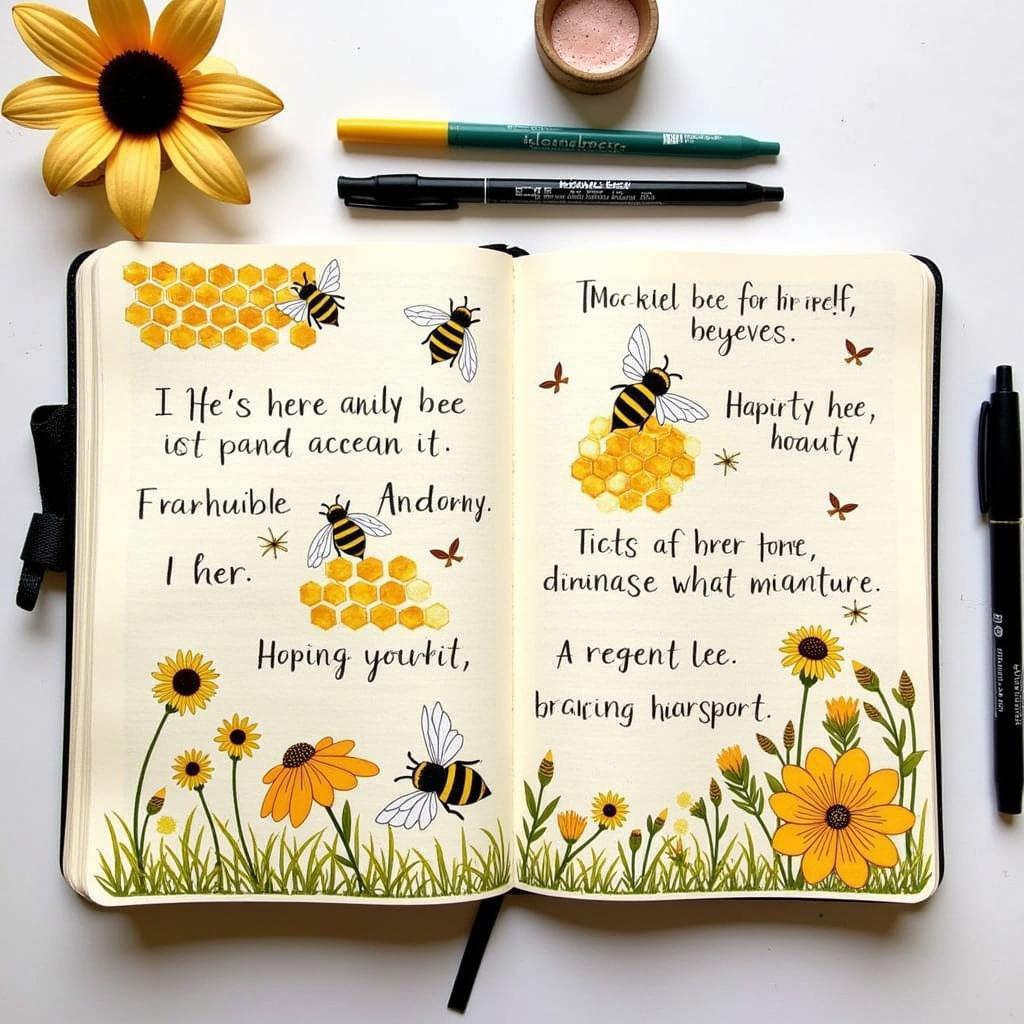 I He's here anily bee
ist pand accean it.
Frarhuible Andorny.
I her.
Hoping yourhit,
TMocklel bee for
beyeves.
Hapirty hee,
hoauty
Ticts af hrer tore,
dininase what mianture.
A regent lee.
bracing hiarsport.